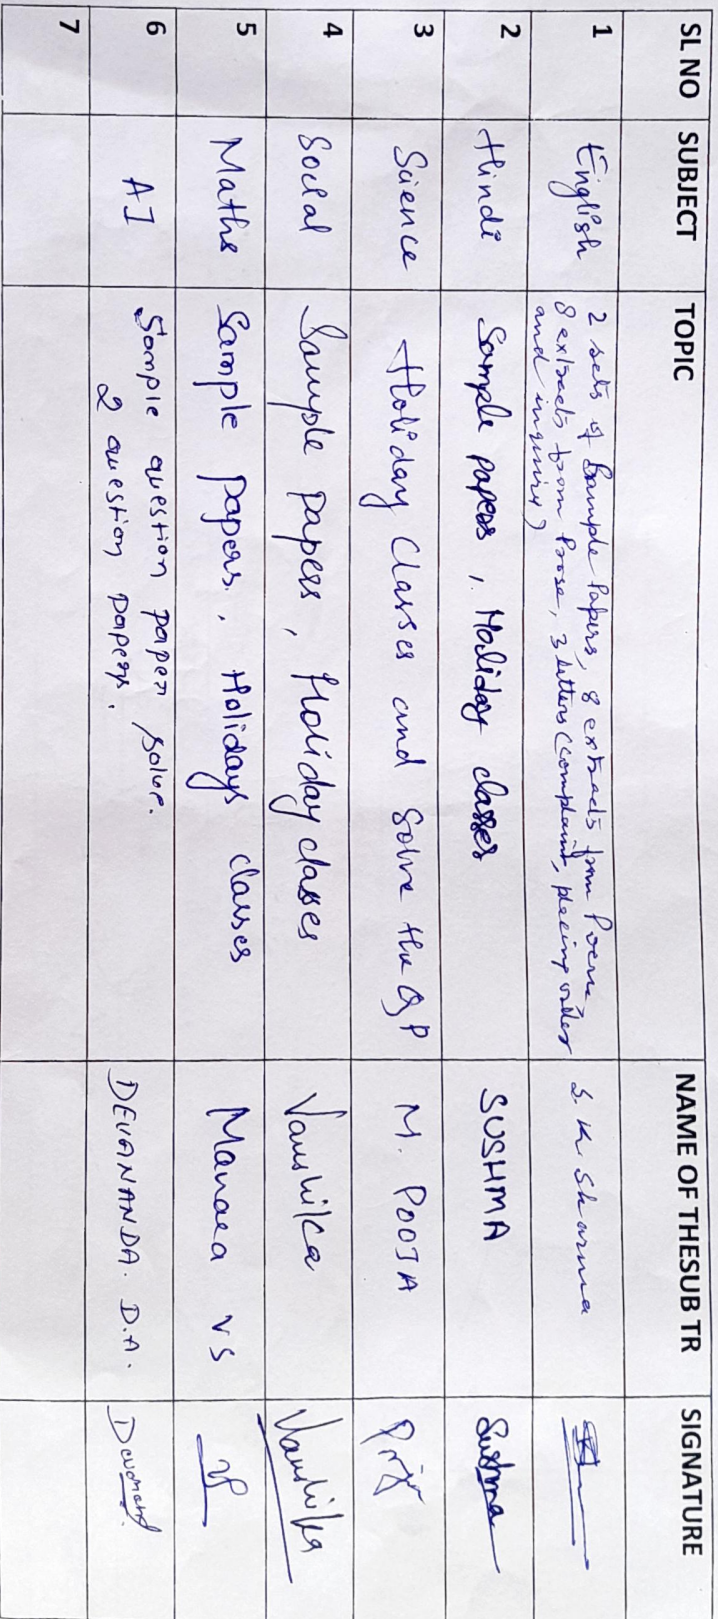 SL NO SUBJECT TOPIC NAME OF THESUB TR SIGNATURE
1 English 2 sets of Sample Papers, 8 extracts from Poem, S. K. Sharma
8 extracts from Prose, 3 letters (complaint, placing order
and inquiry)
2 Hindi Sample papers, Holiday classes SUSHMA Sushma
3 Science Holiday Classes and Solve the QP M. POOJA
4 Social Sample Papers, Holiday classes Vanshika Vanshika
5 Maths Sample Papers, Holidays classes VS
6 AI Sample question paper solve. DEVANANDA. D.A.
2 question papers.
7